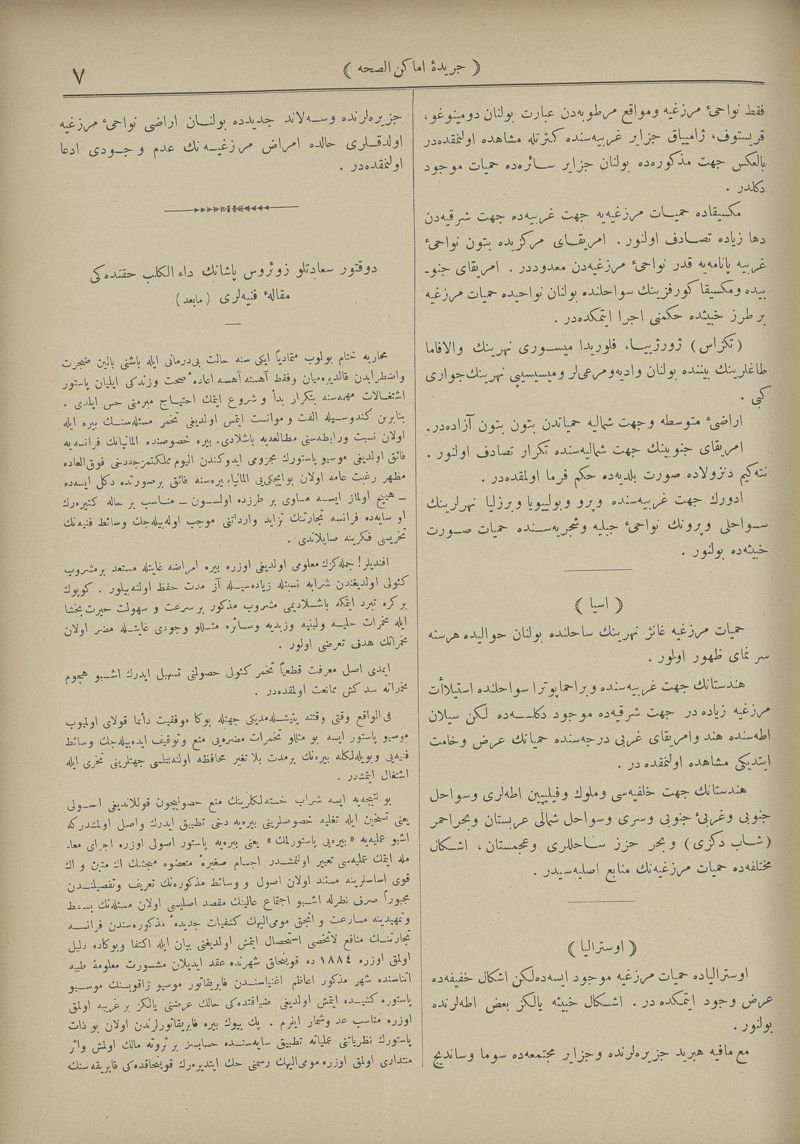 ﴿ جريدۀ اماكن الصحه ﴾
٧
فقط نواحیٔ مرزغيه ومواقع مرطوبه‌دن عبارت بولنان دومينوغو،
قريستوف، ژاميياق جزاير غربيه‌سنده كثرتله مشاهده اولنمقده‌در
بالعكس جهت مذكوره‌ده بولنان جزاير سـائره‌ده حميات موجود
دكلدر .
مكسيقاده حميـات مرزغيه‌يه جهت غربيه‌ده جهت شرقيه‌دن
دها زياده تصـادف اولنور . امريقـاى مركزيده بتون نواحیٔ
غربيه پانامه‌يه قدر نواحیٔ مرزغيه‌دن معدوددر . امريقاى جنو-
بيده ومكسيقا كورفزينك سواحلنده بولنان نواحيده حميات مرزغيه
بر طرز خبيثده حكمنى اجرا ايتمكده‌در .
(تكزاس) ژورژيـا، فلوريدا ميسـورى نهرينك والاقاما
طاغلرينك بيننده بولنان واديه‌ومرعى‌لر وميسيسيپى نهرينك جوارى
كبى .
اراضیٔ متوسطه وجهت شماليه حمياتدن بتون بتون آزاده‌در.
امريقاى جنوبينك جهت شماليه‌سنده تكرار تصادف اولنور .
نته‌كيم دنزولاده صورت بلديه‌ده حكم فرما اولمقده‌در .
ادورك جهت غربيه‌سنده وپرو وبوليويا وبرزليا نهرلرينك
سـواحلى وپرونك نواحیٔ جبليه وشجريه‌سـنده حميات صـورت
خبيثه‌ده بولنور .
﴿ اسيا ﴾
حميات مرزغيه غانژ نهرينك ساحلنده بولنان حواليده هرسنه
سر نماى ظهور اولور .
هندستانك جهت غربيه‌سنده وبراحماپوترا سواحلنده استيلاآت
مرزغيه زياده‌در جهت شرقيه‌ده موجود دكلسه‌ده لكن سيلان
اطه‌سنده هند وامريقاى غربى درجه‌سنده حمياتك عرض وخامت
ايتديكى مشاهده اولنمقده‌در .
هندستانك جهت خلفيه‌سى وملوك وفيليپين اطه‌لرى وسواحل
جنوبى وغربیٔ جنوبى وسرى وسواحل شمالى عربستان وبحراحمر
(شاب دكزى) وبحر حزر سـاحللرى وعجمستان، اشـكال
مختلفه‌ده حميات مرزغيه‌نك منابع اصليه‌سيدر .
﴿ اوستراليا ﴾
اوسترالياده حميات مرزغيه موجود ايسه‌ده‌لكن اشكال خفيفه‌ده
عرض وجود ايتمكده‌در . اشـكال خبيثه يالكز بعض اطه‌لرنده
بولنور .
مع مافيه هبريد جزيره‌لرنده وجزاير مجتمعه‌ده سوما وسانديج
جزيره‌لرنده وسـه‌لاند جديدده بولنـان اراضى نواحیٔ مرزغيه
اولدقـلرى حالده امراض مرزغيـه‌نك عدم و جـودى ادعا
اولنمقده‌در .
دوقتور سعادتلو زوئروس پاشانك داء الكلب حقنده‌كى
مقالۀ فنيه‌لرى (مابعد)
محاربه ختام بولوب متمادياً ايكى سنه حالت بى‌درمانى ايله باشنى يالين ضجرت
واضطرابدن قالديره‌ميان وفقط آهسته آهسه اعادۀ صحت وزندكى ايليان پاستور
اشتغالات مهمه‌سنه بتكرار بدأ و شروع ايتمك احتيـاج مبرمنى حس ايلدى .
بنابرين كندوسـيله الفت و موانست ايتمس اولديغى تخمر مسئله‌سنـك بيره ايله
اولان نسبت ورابطه‌سنى مطالعه‌يه باشلادى. بيره خصوصنده المانيانك فرانسه‌يه
فائق اولديغى موسيو پاستورك مجزومى ايدوكندن اليوم مملكتمزجه‌دخى فوق‌العاده
مظهر رغبت عامه اولان بوايچكى‌يى المانيا بيره‌سنه فائق برصورتده دكل ايسه‌ده
ـ هيچ اولماز ايسـه مساوى بر طرزده اولسـون ـ مناسب بر حاله كتيره‌رك
او سايه‌ده فرانسه تجارتنك تزايد وارداتنى موجب اوله‌بيله‌جك وسائط فنيه‌نك
تحريسى فكرينه صاپلاندى .
افنديلر! جمله‌كزك معلومى اولديغى اوزره بيره امراضه غايتله مستعد برمشروب
كئولى اولديغندن شرابه نسبتله زياده‌سيـله آز مدت حفظ اولنه‌بيلور . كوپوك
بركره تبرد ايتمكه باشـلاديمى مشروب مذكور بر سرعت و سهولت حيرت‌بخشا
ايله مخمرات حليـه ولبنيه وزبديه وسـائره مثـللو وجودى غايتـله مضر اولان
مخمراتك هدف تعرضى اولور .
ايمدى اصل معرفت قطعياً تخمر كئولى حصولنى تسهيل ايدرك اشـبو هجوم
مخمراته سد كش ممانعت اولمقده‌در .
فى الواقع وقتى وقتنه يتيشـله‌مديكى جهتله بوكا موفقيت دائما قولاى اولميوب
موسيو پاستور ايسه بو مثللو تخمرات مضره‌يى منع وتوقيف ايده‌بيله‌جك وسائط
فنيه‌يى وبويله‌لكله بيره‌نك برمدت بلا تغير محافظه اولنه‌بتلسى جهتلرينى تحرى ايله
اشتغال ايتمشدر .
بو نتيجه‌يه ايسه شراب خسته‌لكلرينك منع حصوليچون قوللانديغى اصـولى
يعنى تسخين ايله تغليه خصوصلرينى بيره‌يه دخى تطبيق ايدرك واصل اولمشدركه
اشبو عمليه‌يه «بيره‌يى پاستورلمك» يعنى بيره‌يه پاستور اصولى اوزره اجراى معا-
مله ايتمك عمليه‌سى تعبير اولنمشـدر اجسام صغيرۀ متعضوه مبحثنك اك متين و اك
قوى اساسلرينه مستند اولان اصول و وسائط مذكوره‌نك تعريف وتفصيلنـدن
مجبوراً صرف نظرله اشـبو اجتماع عالينك مقصد اصليسى اولان مسئله‌نك بسـط
وتمهيدينه مسارعت و انجق مومى‌اليهك كشفيات جديدۀ مذكوره‌سندن فرانسـه
تجارتنـك منافع لاتحصى استحصال ايتمش اولديغنى بيان ايله اكتفا وبوكاده دليل
اولمق اوزره ١٨٨٤ ده قوپنهاق شهرنده عقد ايديلان مشـورت معلومۀ طبيه
اثناسنده شهر مذكور اعاظم اغنياسنـدن فابريقاتور موسيو ژاقوبسـنك موسـيو
پاستوره كشيـده ايتمش اولديغى ضيافتده‌كى حالك عرضنى يالكز برغريبه اولمق
اوزره مناسب عد وشمار ايدرم . پك بيوك بيره فابريقاتورلرندن اولان بو ذات
پاستورك نظرياتنى عملياته تطبيق سايه‌سنـده حسابسز بر ثروته مالك اولمش واثر
متندارى اولمق اوزره مومى‌اليهك رسمنى حك ايتديره‌رك قوپنهاقده‌كى فابريقه‌سنك